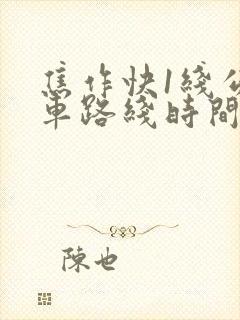 焦作快1綫公
車路綫時間
陳也